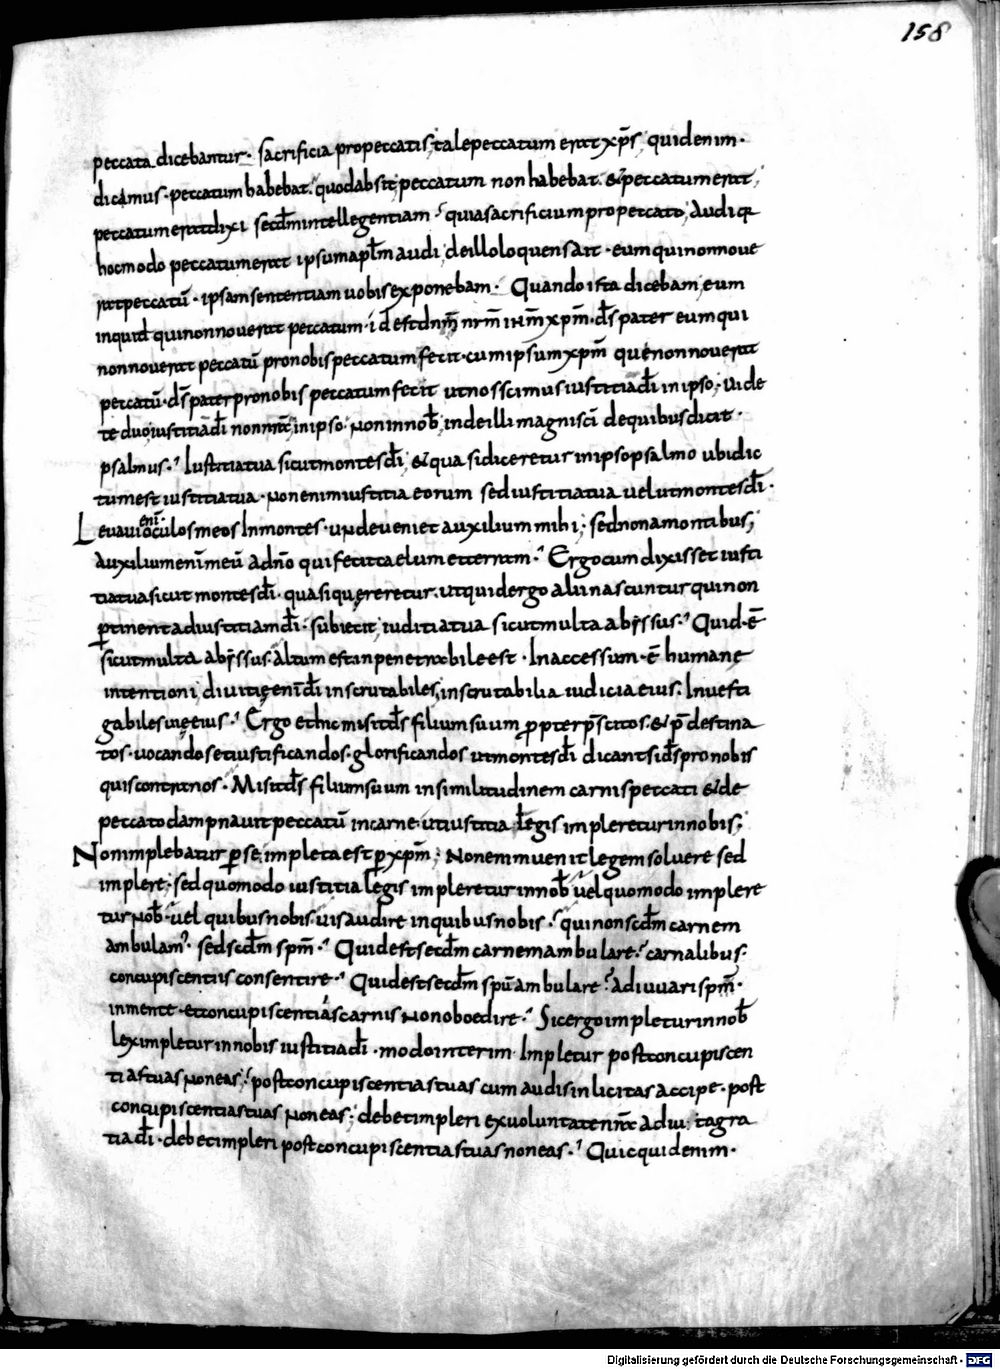 158
peccata dicebantur· sacrificia propeccatis; talepeccatum erat xp̄s, quidenim·
dicamus· peccatum habebat· quodabsit; peccatum non habebat· & peccatumerat;
peccatumeratdixi secdm̄intellegentiam; quiasacrificiumpropeccato; Audi q͛
hocmodo peccatumerat ipsumapłm audi; deilloloquensait· eumquinonnoue
ratpeccatū· ipsamsententiam uobisexponebam· Quandoista dicebam, eum
inquid quinonnouerat peccatum· id ēst dn̄m nr̄m ihm̄ xpm̄· dʼs pater eumqui
nonnouerat peccatū pronobispeccatumfecit· cumipsumxpm̄ quēnonnouerat
peccatū· dʼs paterpronobis peccatumfecit utnossimusiustitiadi̅ inipso; uide
te duo iustitia di̅ non nr̄a; inipso· noninnob̄; indeilli magnisci̅ dequibusdicit·
psalmus· Iustitiatua sicutmontesdi̅, & qua sidiceretur inipsopsalmo ubidic
tumest iustitiatua· nonenimiustitia eorum sediustitiatua uelutmontesdi̅·
Leuaui enī oculosmeos Inmontes· undeueniet auxilium mihi; sednonamontibus;
auxiliumenim̄meū adnō quifecitcaelumetterram· Ergocumdixisset iusti
tiatuasicut montesdi̅· quasiquęreretur· utquidergo aliinascuntur quinon
p̱tinentadiustitiamdi̅· subiecit, iuditiatua sicutmulta abẏssus· Quid·ē
sicutmulta abẏssus: altumestinpenetrabileest· Inaccessum·ē humanę
intentioni, diuitięenīdi̅ inscrutabiles, inscrutabilia iudiciaeius; Inuesti
gabilesuięeius· Ergo ethic misitdʼs filiumsuum p̱pterp̄scitos, & p̄destina
tos· uocandosetiustificandos· glorificandos utmontesdi̅ dicantsidʼspronobis
quiscontranos· Misitdʼs filiumsuum insimilitudinem carnispeccati & de
peccatodampnauit peccatū incarne· utiustitia legis implereturinnobis;
Nonimplebatur p̱ se, impletaest p̱ xpm̄; nonenimuenit legemsoluere sed
implere; sedquomodo iustitia legis impleretur innob̄ uelquomodo implere
tur nob̄· uel quibusnobis· uisaudire inquibusnobis· quinonscd̄m carnem
ambulam̄· sedscd̄m spm̄· Quidestsecd̄m carnemambulare? carnalibus·
concupiscentiis consentire· Quidestsecd̄m spū ambulare? adiuuarispm̄·
inmente· etconcupiscentiascarnis nonoboedire· Sicergoimpleturinnob̄
lex impletur innobis iustitiadi̅· modointerim· Impletur postconcupiscen
tiastuas noneas; postconcupiscentiastuas cum audisinlicitasaccipe· post
concupiscentiastuas noneas; debetimpleri exuoluntatenr̄a adiu tagra
tiadi̅· debetimpleri postconcupiscentiastuasnoneas· Quicquidenim·
Digitalisierung gefördert durch die Deutsche Forschungsgemeinschaft - DFG